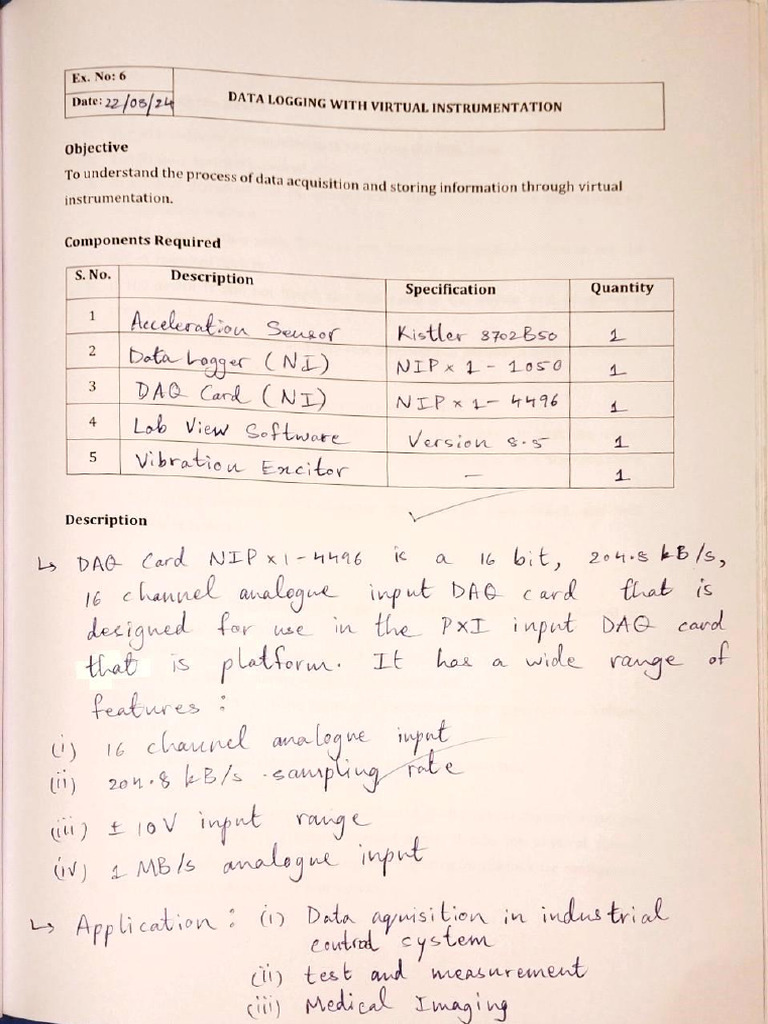 Ex. No: 6
Date: 22/03/24
DATA LOGGING WITH VIRTUAL INSTRUMENTATION
Objective
To understand the process of data acquisition and storing information through virtual
instrumentation.
Components Required
S. No. Description Specification Quantity
1 Acceleration Sensor Kistler 8702B50 1
2 Data Logger (NI) NIP×1-1050 1
3 DAQ Card (NI) NIP×1-4496 1
4 Lab View Software Version 8.5 1
5 Vibration Excitor - 1
Description
↳ DAQ Card NIP×1-4496 is a 16 bit, 204.8 kB/s,
16 channel analogue input DAQ card that is
designed for use in the PXI input DAQ card
that is platform. It has a wide range of
features :
(i) 16 channel analogue input
(ii) 204.8 kB/s sampling rate
(iii) ± 10V input range
(iv) 1 MB/s analogue input
↳ Application : (i) Data aquisition in industrial
control system
(ii) test and measurement
(iii) Medical Imaging